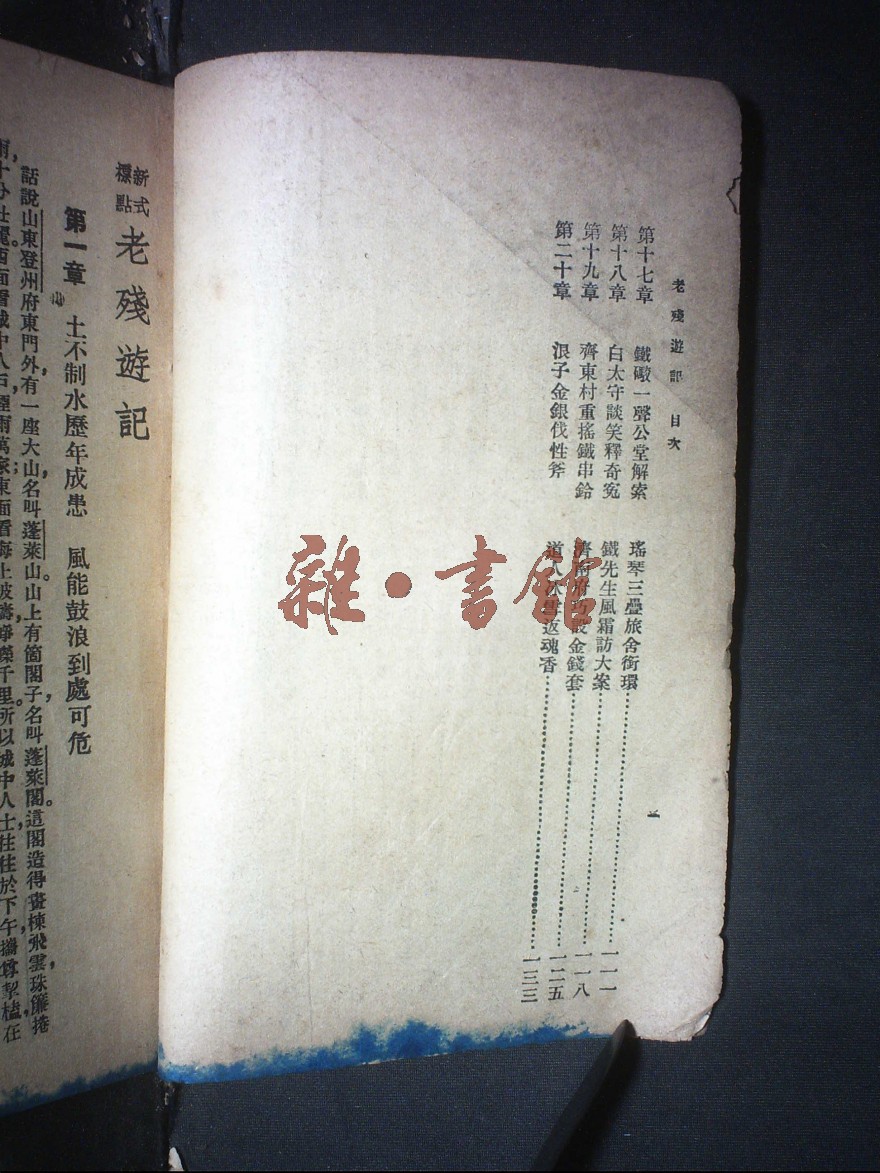 老殘遊記 目次
第十七章 鐵礮一聲公堂解索 瑤琴三疊旅舍銜環……一一一
第十八章 白太守談笑釋奇寃 鐵先生風霜訪大案……一一八
第十九章 齊東村重搖鐵串鈴 濟南府巧設金錢套……一二五
第二十章 浪子金銀伐性斧 道人冰雪返魂香……一三三
雜·書館
新式標點 老殘遊記
第一章 土不制水歷年成患 風能鼓浪到處可危
話說山東登州府東門外有一座大山,名叫蓬萊山。山上有箇閣子,名叫蓬萊閣。這閣造得畫棟飛雲,珠簾捲
十分壯麗。西面看城中人戶,煙雨萬家;東面看海上波濤,崢嶸千里。所以城中人士往往於下午攜尊挈榼在